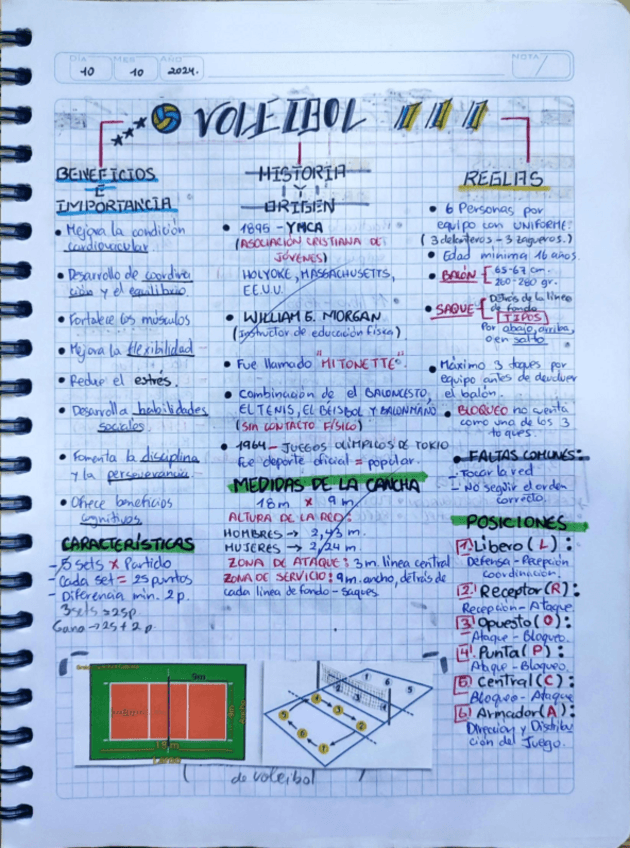 DÍA
MES
AÑO
NOTA
10
10
2024.
VOLEIBOL
BENEFICIOS
E
IMPORTANCIA
• Mejora la condición
cardiovascular.
• Desarrollo de coordina
ción y el equilibrio.
• Fortalece los músculos
• Mejora la flexibilidad
• Reduce el estrés.
• Desarrolla habilidades
sociales.
• Fomenta la disciplina
y la perseverancia.
• Ofrece beneficios
cognitivos.
CARACTERÍSTICAS
- 5 sets x Partido
- Cada set = 25 puntos
- Diferencia mín. 2 p.
3 sets = 25p
Gana → 25 + 2 p.
HISTORIA
Y
ORIGEN
• 1895 - YMCA
(ASOCIACIÓN CRISTIANA DE
JÓVENES)
HOLYOKE, MASSACHUSETTS,
EE.U.U.
• WILLIAM G. MORGAN
(Instructor de educación física)
• Fue llamado "MITONETTE".
• Combinación de el BALONCESTO,
EL TENIS, EL BEISBOL Y BALONMANO
(SIN CONTACTO FÍSICO)
• 1964 - JUEGOS OLÍMPICOS DE TOKIO
Fue deporte oficial = popular.
MEDIDAS DE LA CANCHA
18 m x 9 m
ALTURA DE LA RED:
HOMBRES → 2,43 m.
MUJERES → 2,24 m.
ZONA DE ATAQUE: 3 m. línea central
ZONA DE SERVICIO: 9 m. ancho, detrás de
cada línea de fondo - saques.
REGLAS
• 6 Personas por
equipo con UNIFORME.
(3 delanteros - 3 zagueros.)
• Edad mínima 16 años.
• BALÓN 65-67 cm.
260-280 gr.
• SAQUE Detrás de la línea
de fondo
TIPOS
Por abajo, arriba,
o en salto
• Máximo 3 toques por
equipo antes de devolver
el balón.
• BLOQUEO no cuenta
como una de los 3
toques.
• FALTAS COMUNES:
- Tocar la red
- No seguir el orden
correcto.
POSICIONES
1. Libero (L):
Defensa - Recepción
coordinación.
2. Receptor (R):
Recepción - Ataque
3. Opuesto (O):
Ataque - Bloqueo.
4. Punta (P):
Ataque - Bloqueo.
5. Central (C):
Bloqueo - Ataque
6. Armador (A):
Dirección y Distribu
ción del Juego.
9m
18 m
1
6
5
de voleibol